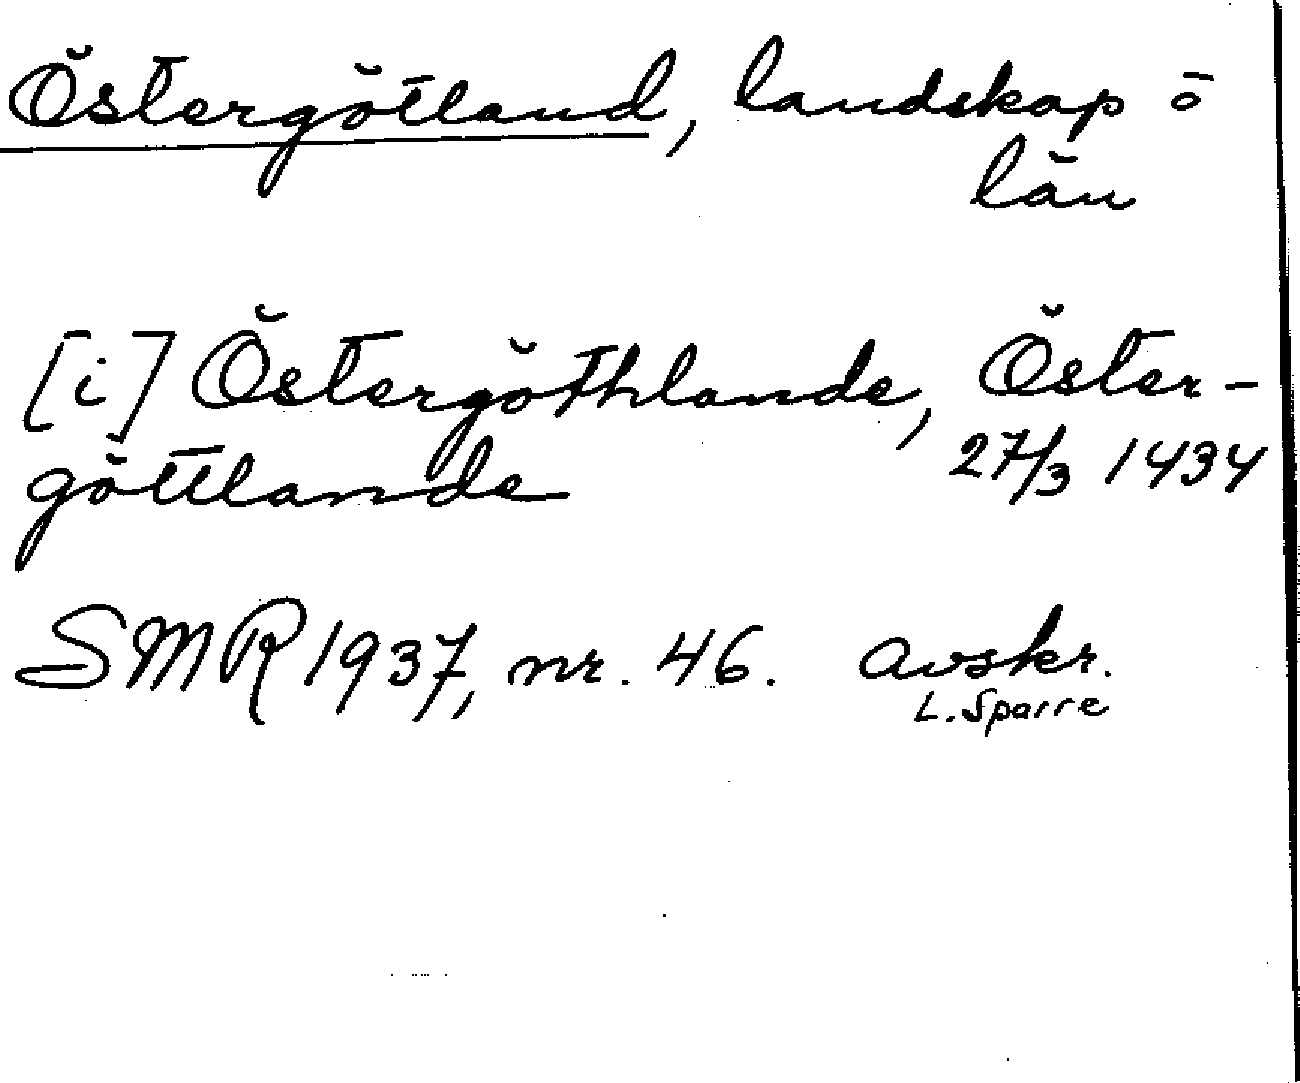 Östergötland, landskap o
län
[i] Östergöthlande, Öster-
göttlande 27/3 1434
SMR 1937, nr. 46. avskr.
L. Sparre